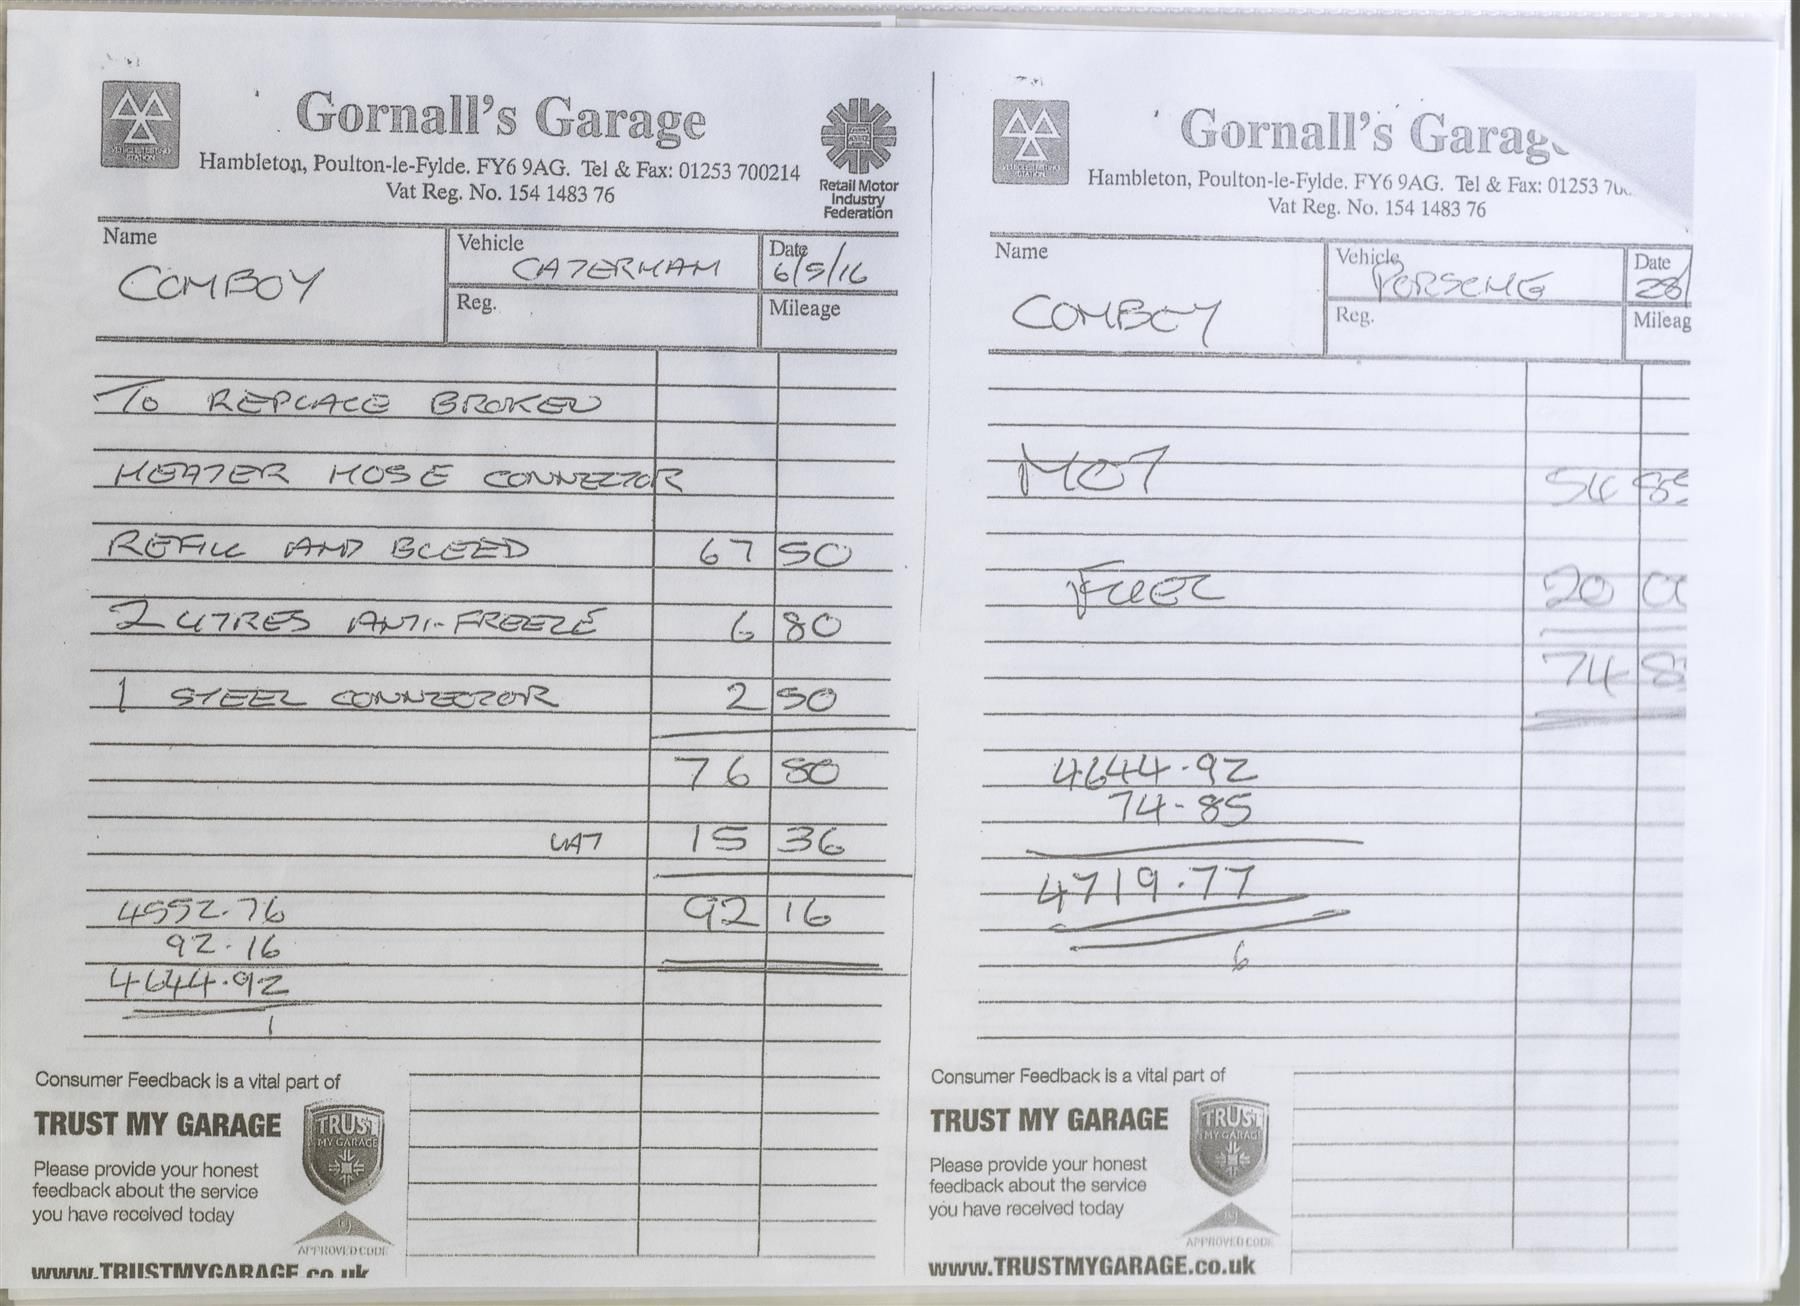 Gornall's Garage
Hambleton, Poulton-le-Fylde. FY6 9AG. Tel & Fax: 01253 700214
Vat Reg. No. 154 1483 76
Retail Motor
Industry
Federation
Name
COMBOY
Vehicle
CATERHAM
Date
6/5/16
Reg.
Mileage
TO REPLACE BROKEN
HEATER HOSE CONNECTOR
REFILL AND BLEED 67 50
2 LITRES ANTI-FREEZE 6 80
1 STEEL CONNECTOR 2 50
76 80
VAT 15 36
4552.76 92 16
92.16
4644.92
1
Consumer Feedback is a vital part of
TRUST MY GARAGE
TRUST
MY GARAGE
Please provide your honest
feedback about the service
you have received today
APPROVED CODE
www.TRUSTMYGARAGE.co.uk
Gornall's Garag
Hambleton, Poulton-le-Fylde. FY6 9AG. Tel & Fax: 01253 70
Vat Reg. No. 154 1483 76
Name
COMBOY
Vehicle
PORSCHE
Date
28/
Reg.
Mileag
MOT 54 85
FUEL 20 00
74 8
4644.92
74-85
4719.77
6
Consumer Feedback is a vital part of
TRUST MY GARAGE
TRUST
MY GARAGE
Please provide your honest
feedback about the service
you have received today
APPROVED CODE
www.TRUSTMYGARAGE.co.uk